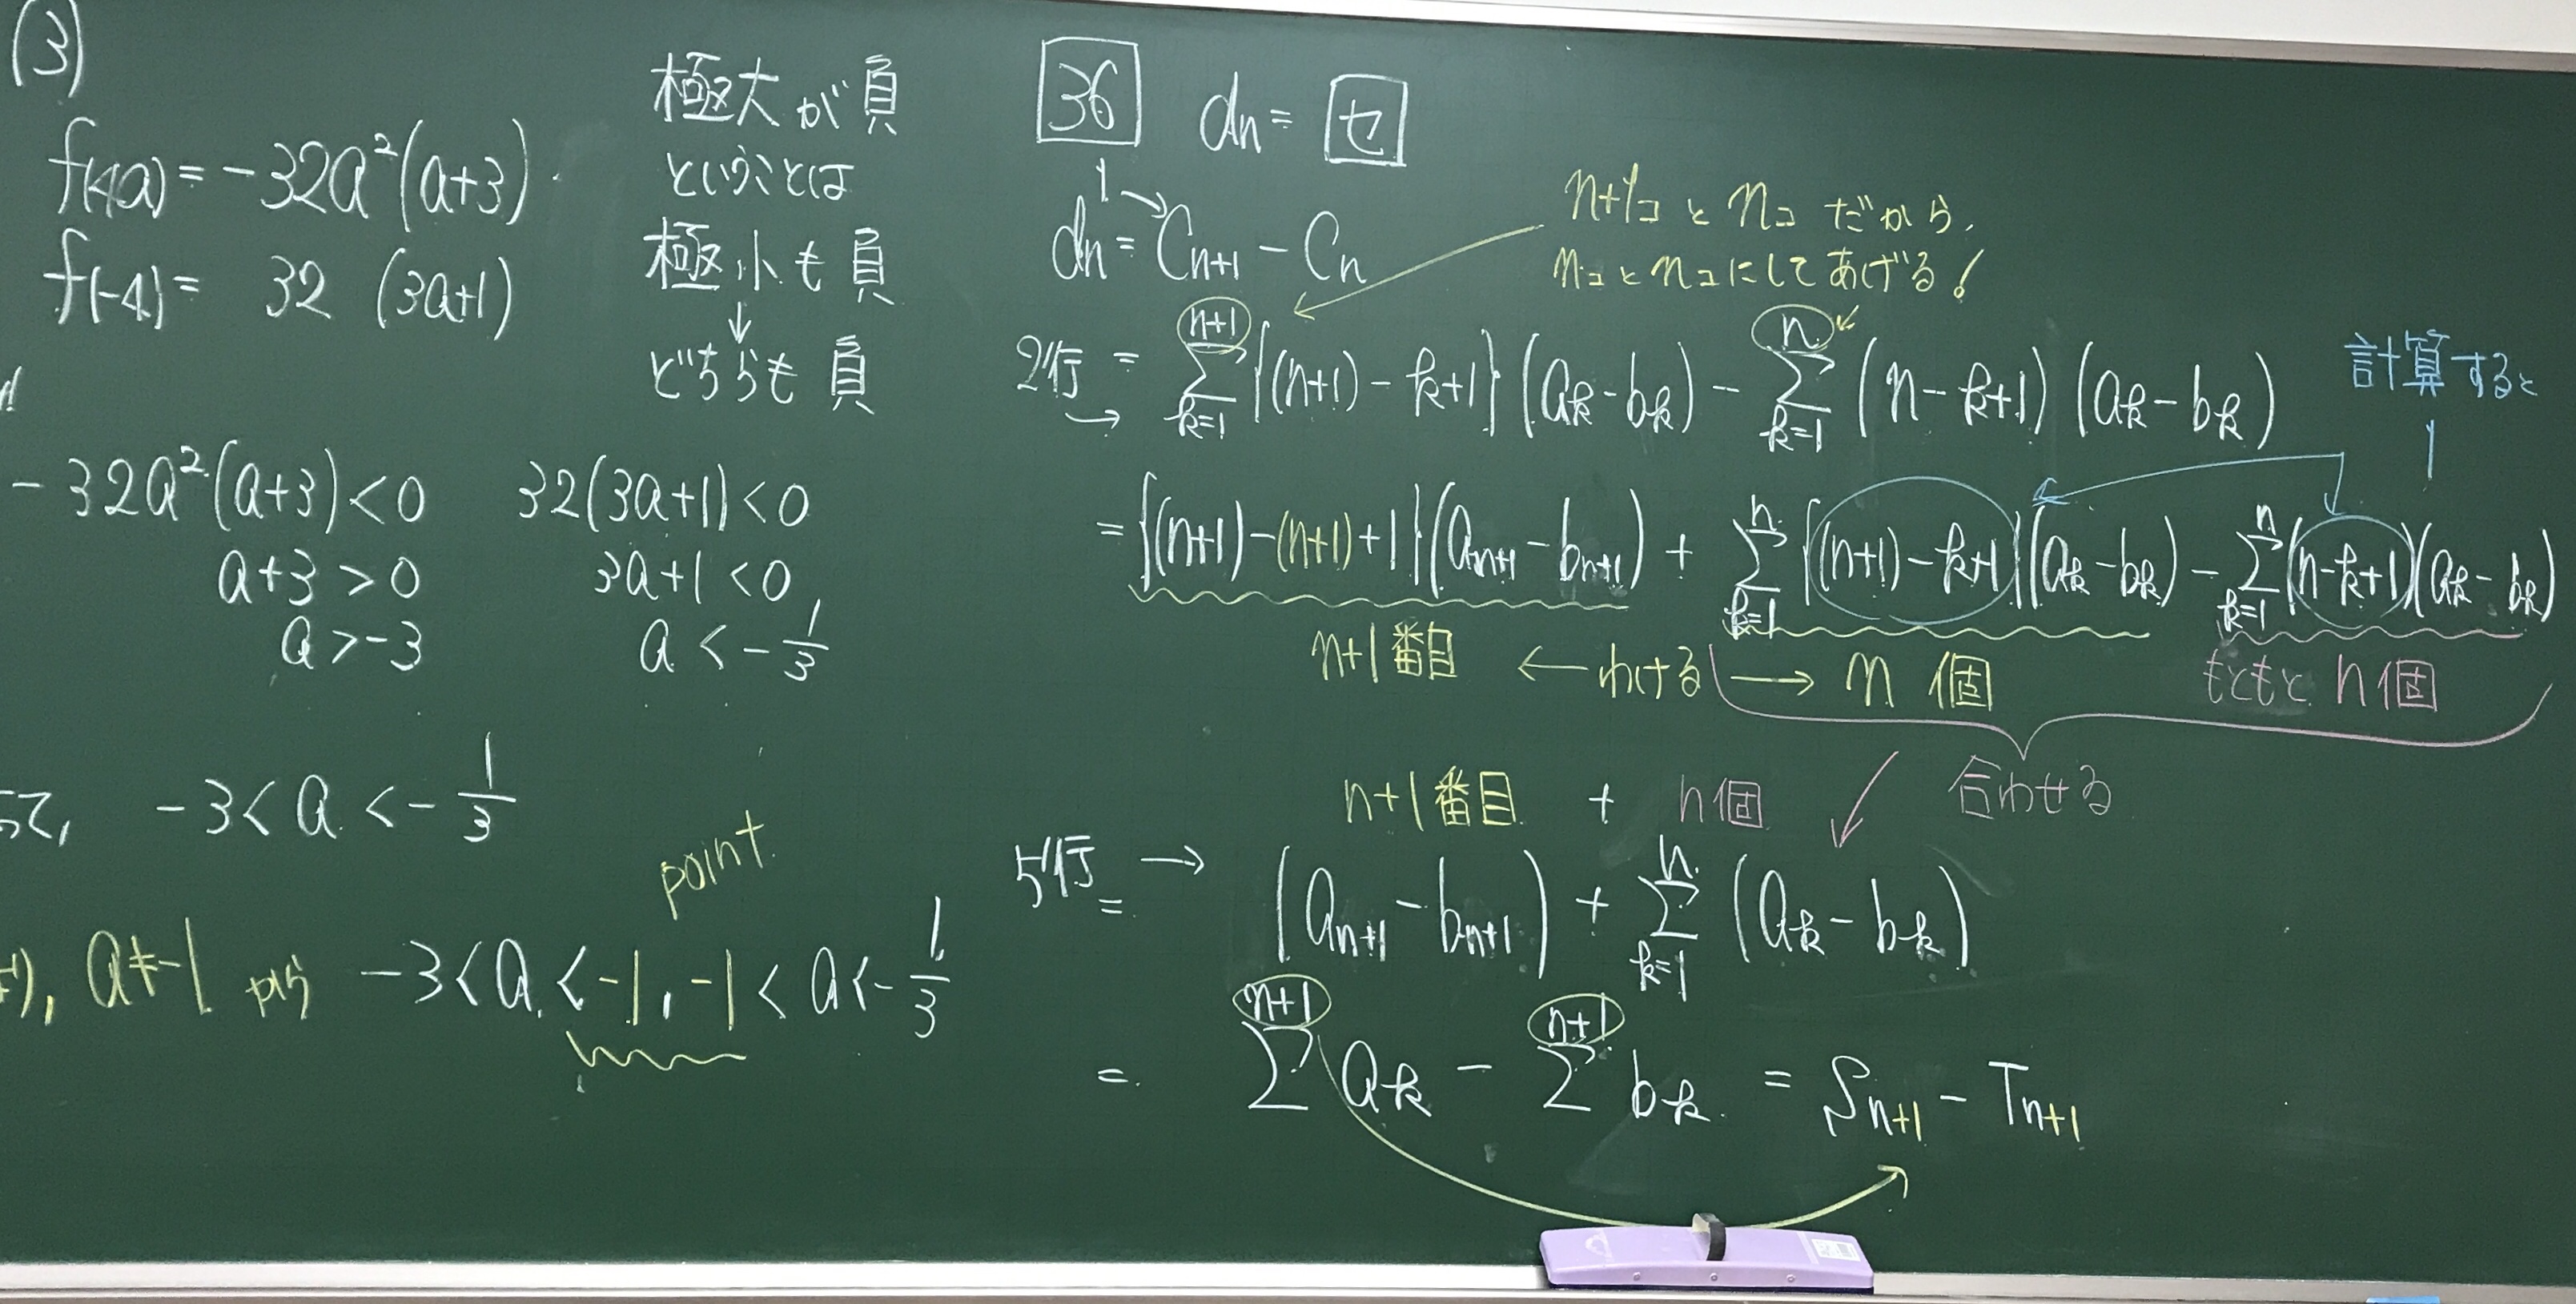 (3)
f(4a) = -32a²(a+3)
f(-4) = 32 (3a+1)
極大が負
ということは
極小も負
↓
どちらも負
-32a²(a+3) < 0
a+3 > 0
a > -3
32(3a+1) < 0
3a+1 < 0
a < -1/3
って, -3 < a < -1/3
point
a≠-1 から -3 < a < -1, -1 < a < -1/3
36 dn = セ
dn = Cn+1 - Cn
n+1コとnコだから,
nコとnコにしてあげる!
2行→ = Σ_{k=1}^{n+1} {(n+1)-k+1}(ak-bk) - Σ_{k=1}^{n} (n-k+1)(ak-bk)
計算すると
= {(n+1)-(n+1)+1}(an+1-bn+1) + Σ_{k=1}^{n} {(n+1)-k+1}(ak-bk) - Σ_{k=1}^{n} (n-k+1)(ak-bk)
n+1番目 ← わける → n個 もともとn個
合わせる
n+1番目 + n個
5行→ = (an+1-bn+1) + Σ_{k=1}^{n} (ak-bk)
= Σ^{n+1} ak - Σ^{n+1} bk = Sn+1 - Tn+1